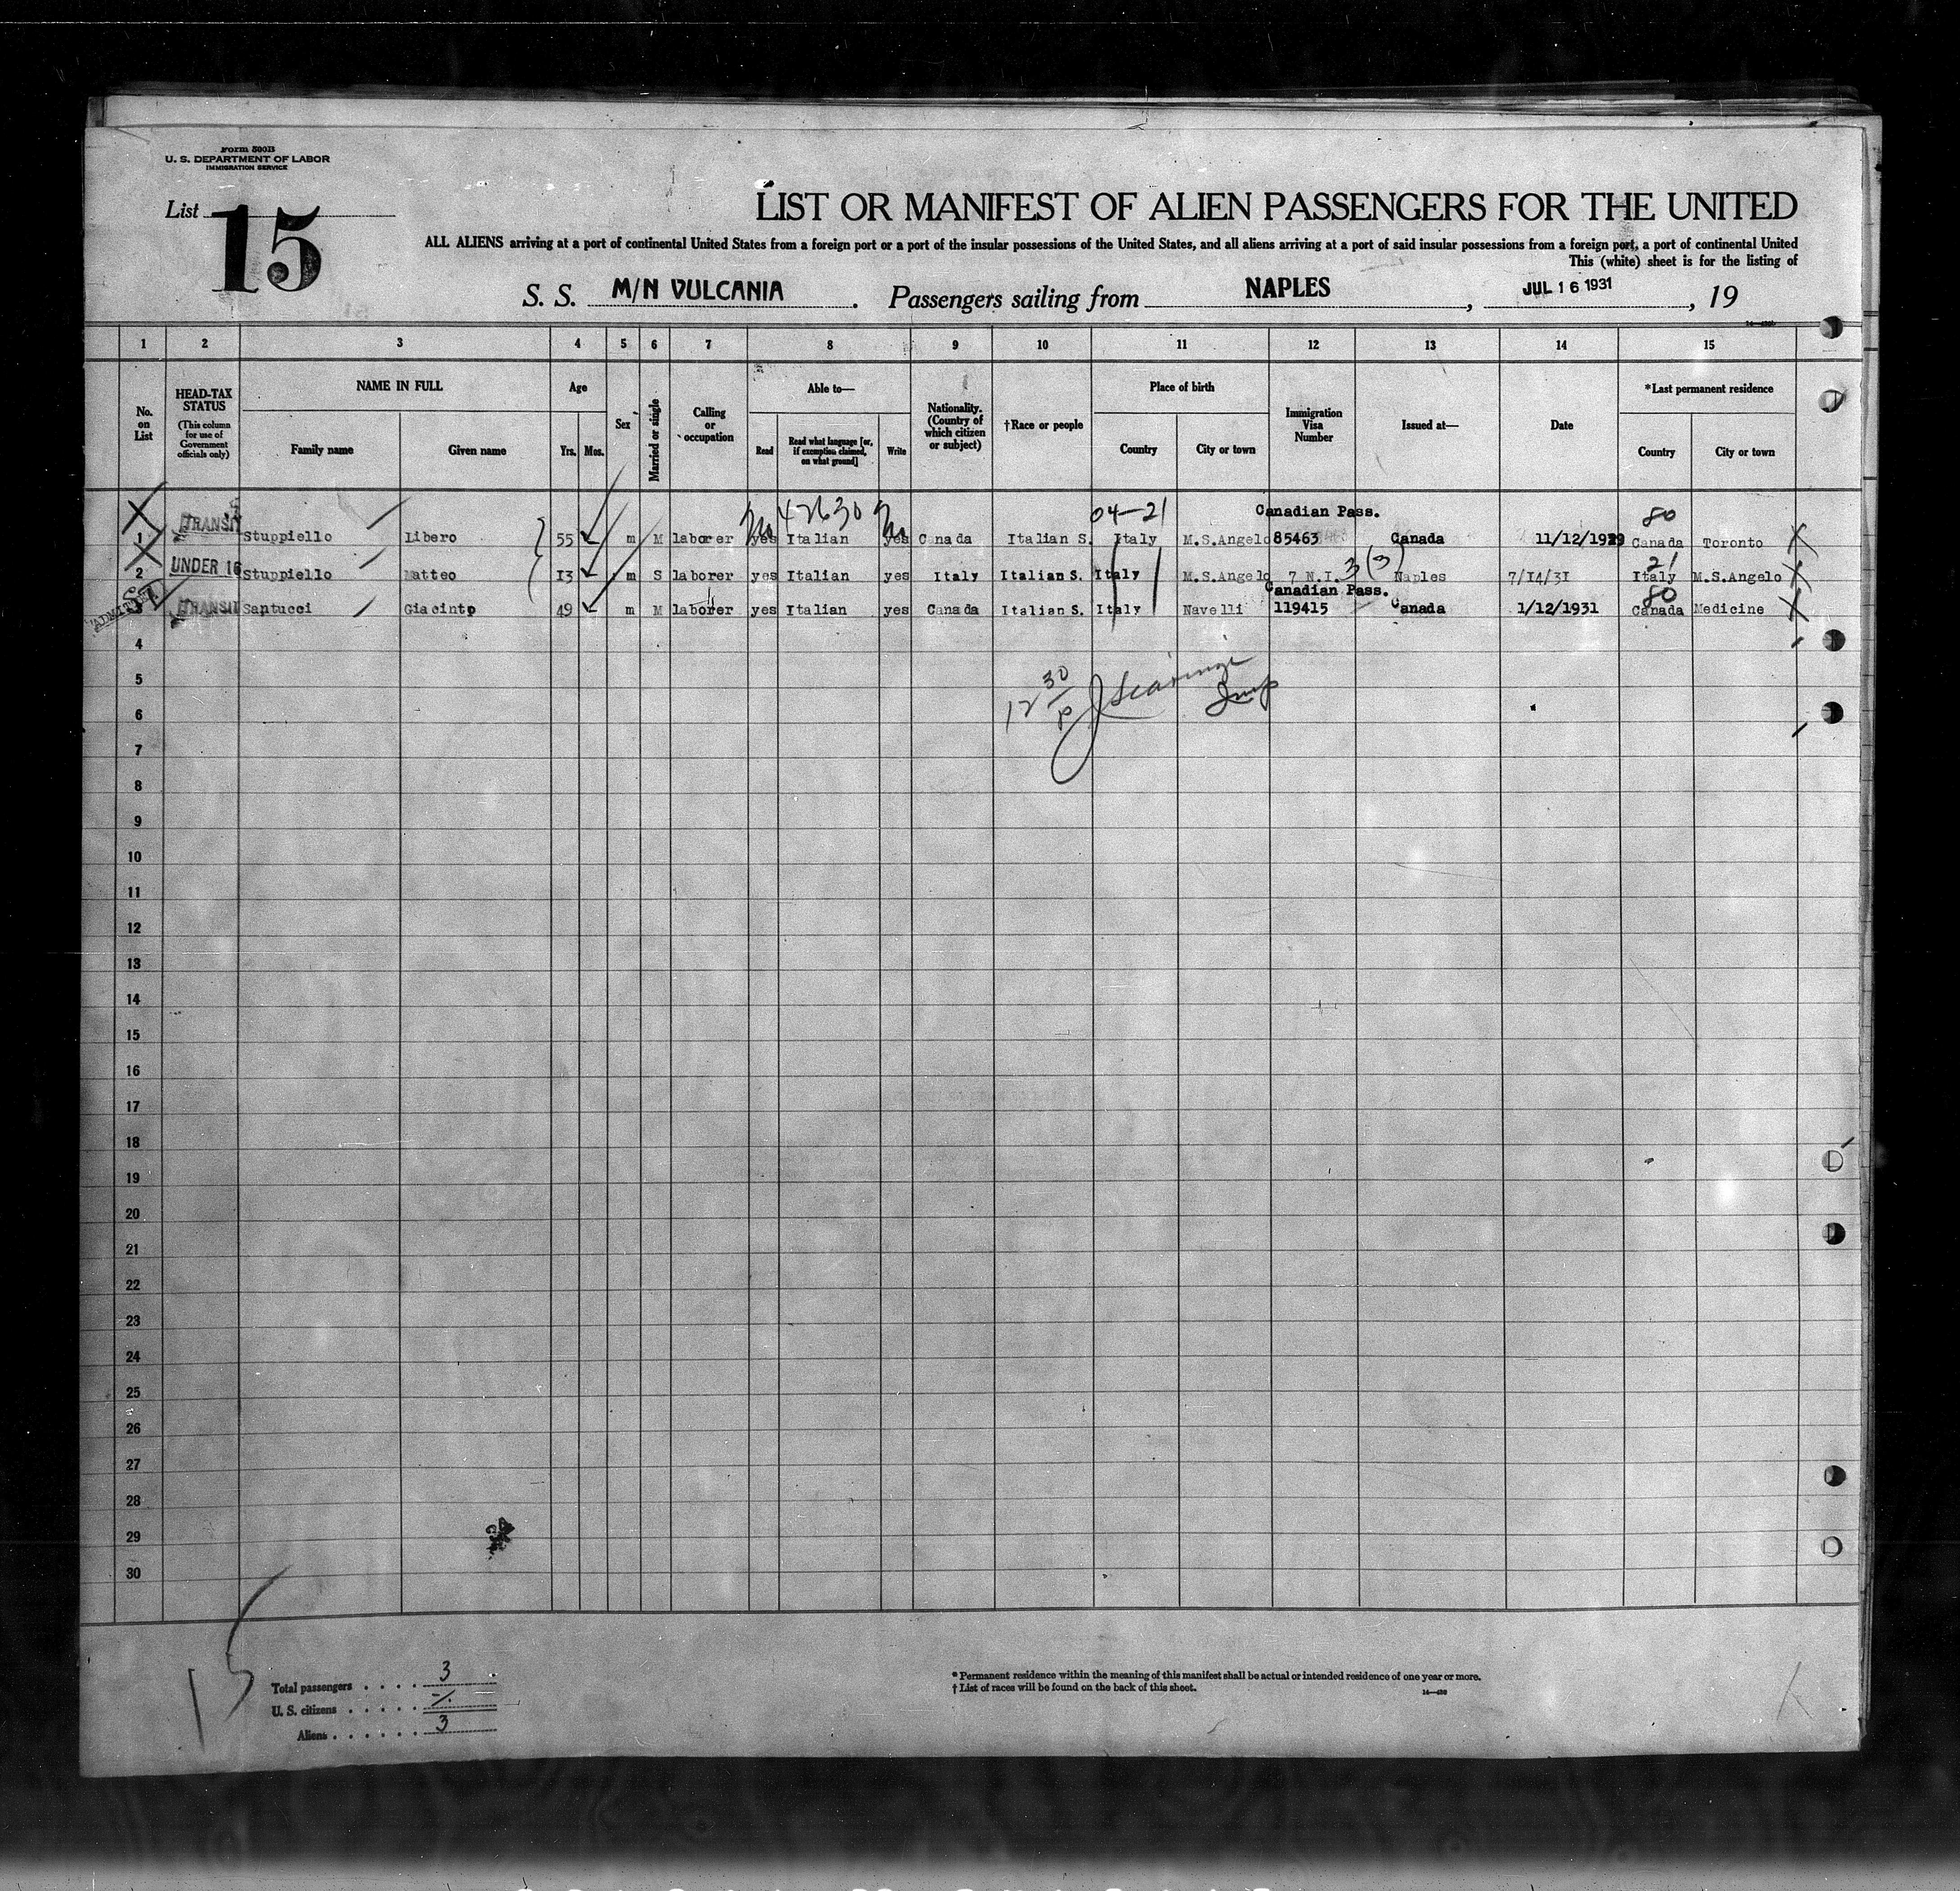 Form 500B
U. S. DEPARTMENT OF LABOR
IMMIGRATION SERVICE
List 15
LIST OR MANIFEST OF ALIEN PASSENGERS FOR THE UNITED
ALL ALIENS arriving at a port of continental United States from a foreign port or a port of the insular possessions of the United States, and all aliens arriving at a port of said insular possessions from a foreign port, a port of continental United
This (white) sheet is for the listing of
S. S. M/N VULCANIA . Passengers sailing from NAPLES , JUL 16 1931 , 19
1 2 3 4 5 6 7 8 9 10 11 12 13 14 15
No. on List
HEAD-TAX STATUS (This column for use of Government officials only)
NAME IN FULL
Family name Given name
Age
Yrs. Mos.
Sex
Married or single
Calling or occupation
Able to—
Read Read what language [or, if exemption claimed, on what ground] Write
Nationality. (Country of which citizen or subject)
†Race or people
Place of birth
Country City or town
Immigration Visa Number
Issued at—
Date
*Last permanent residence
Country City or town
No 42630 No 04-21 Canadian Pass. 80
1 TRANSIT Stuppiello Libero 55 m M laborer yes Italian yes Canada Italian S. Italy M.S.Angelo 85463 Canada 11/12/1929 Canada Toronto
21
2 UNDER 16 Stuppiello Matteo 13 m S laborer yes Italian yes Italy Italian S. Italy M.S.Angelo 7 N.I. 3 (3) Naples 7/14/31 Italy M.S.Angelo
Canadian Pass. 80
ADMITTED 3 TRANSIT Santucci Giacinto 49 m M laborer yes Italian yes Canada Italian S. Italy Navelli 119415 Canada 1/12/1931 Canada Medicine
4
5
12 30 P
Insp
6
7
8
9
10
11
12
13
14
15
16
17
18
19
20
21
22
23
24
25
26
27
28
29
30
15
Total passengers . . . . 3
U. S. citizens . . . . .
Aliens . . . . . . 3
* Permanent residence within the meaning of this manifest shall be actual or intended residence of one year or more.
† List of races will be found on the back of this sheet.